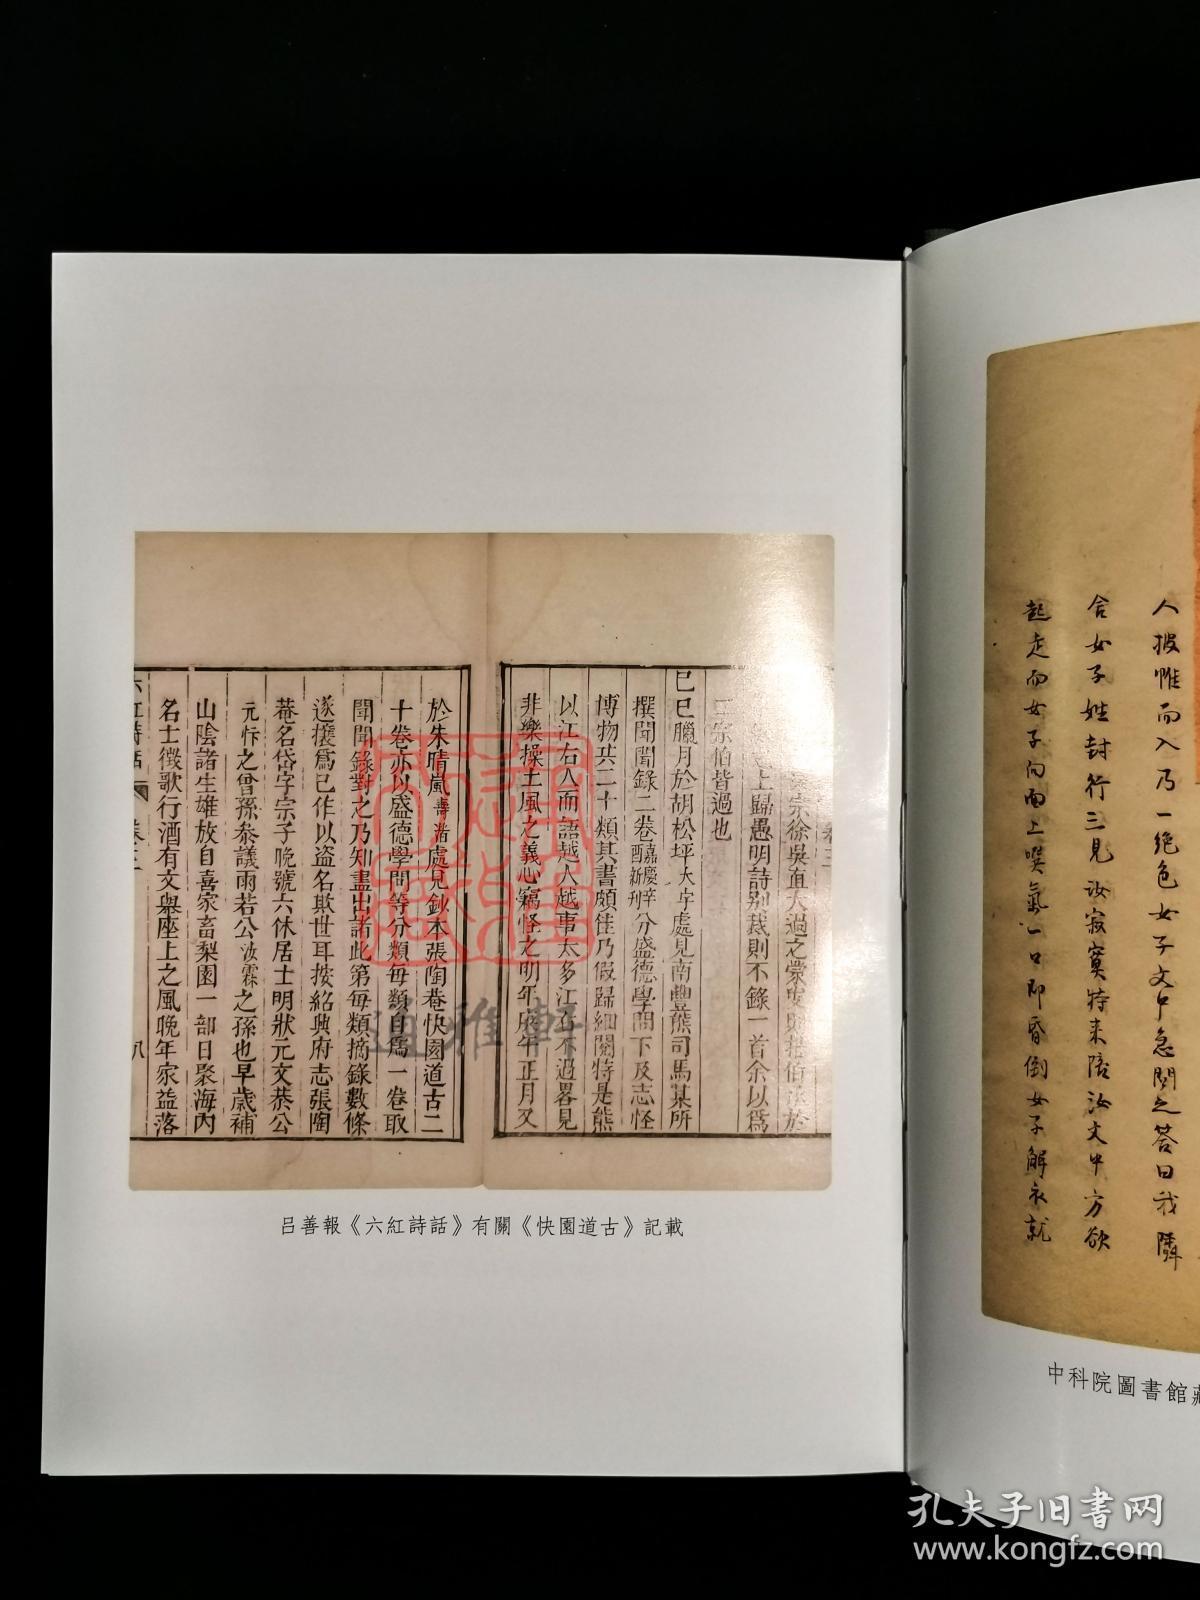 宗徐吳直大過之蒙叟
上歸愚明詩别裁則不錄一首余以爲
三宗伯皆過也
己巳臘月於胡松坪大字處見南豐熊司馬某所
撰聞聞錄二卷嘉慶辛酉新刊分盛德學問下及志怪
博物共二十類其書頗佳乃假歸細閱特是熊
以江右人而語越人越事太多江右不過畧見
非樂操土風之義心竊怪之明年庚午正月又
於朱晴嵐壽潛處見鈔本張陶菴快園道古二
十卷亦以盛德學問等分類每類自爲一卷取
聞聞錄對之乃知盡出諸此第每類摘錄數條
遂攘爲己作以盜名欺世耳按紹興府志張陶
菴名岱字宗子晚號六休居士明狀元文恭公
元忭之曾孫叅議雨若公汝霖之孫也早歲補
山陰諸生雄放自喜家畜梨園一部日聚海內
名士徵歌行酒有文舉座上之風晚年家益落
六紅詩話
卷三
八
通雅軒
吕善報《六紅詩話》有關《快園道古》記載
人披帷而入乃一絕色女子文中急問之荅曰我隣
舍女子姓封行三見汝寂寞特來陪汝文中方欲
起走而女子向面上噀氣一口即昏倒女子解衣就
中科院圖書館藏
孔夫子旧书网
www.kongfz.com